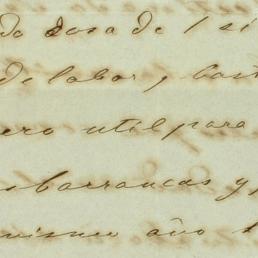 do cosa de 1 si
de labor, y bast
ero util para
s barrancas y p
mismo año 1